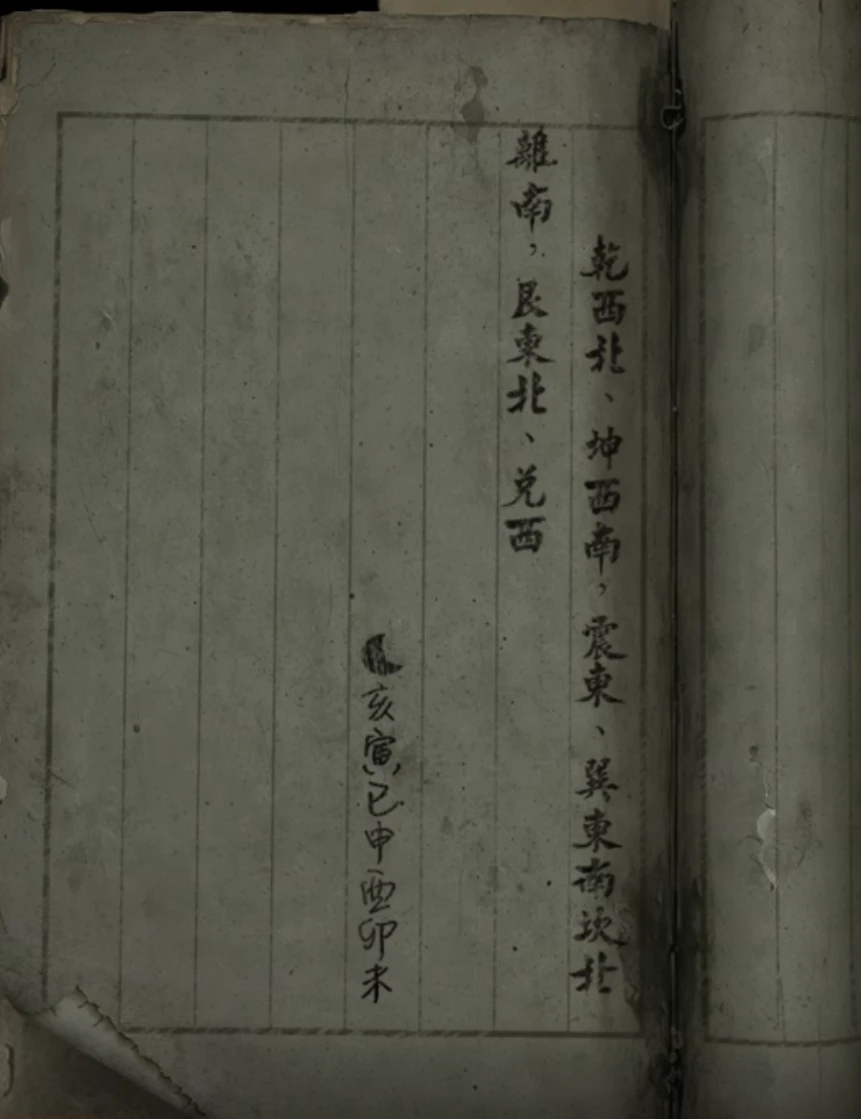 乾西北、坤西南，震東、巽東南坎北
離南，艮東北、兌西
亥寅巳申酉卯未